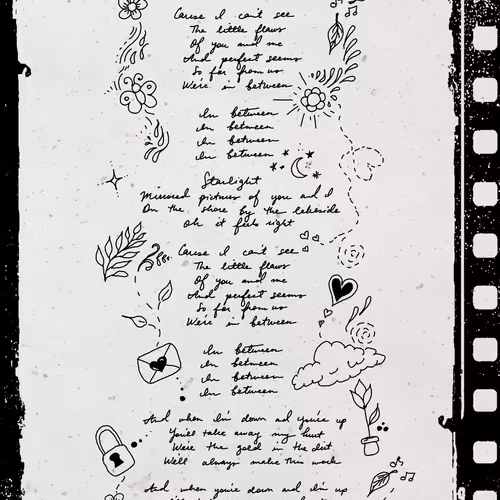 Cause I can't see
The little flaws
Of you and me
And perfect seems
So far from us
We're in between
In between
In between
In between
In between
Starlight
Mirrored pictures of you and I
On the shore by the lakeside
Oh it feels right
Cause I can't see
The little flaws
Of you and me
And perfect seems
So far from us
We're in between
In between
In between
In between
In between
And when I'm down and you're up
You'll take away my hurt
We're the gold in the dirt
We'll always make this work
And when you're down and I'm up